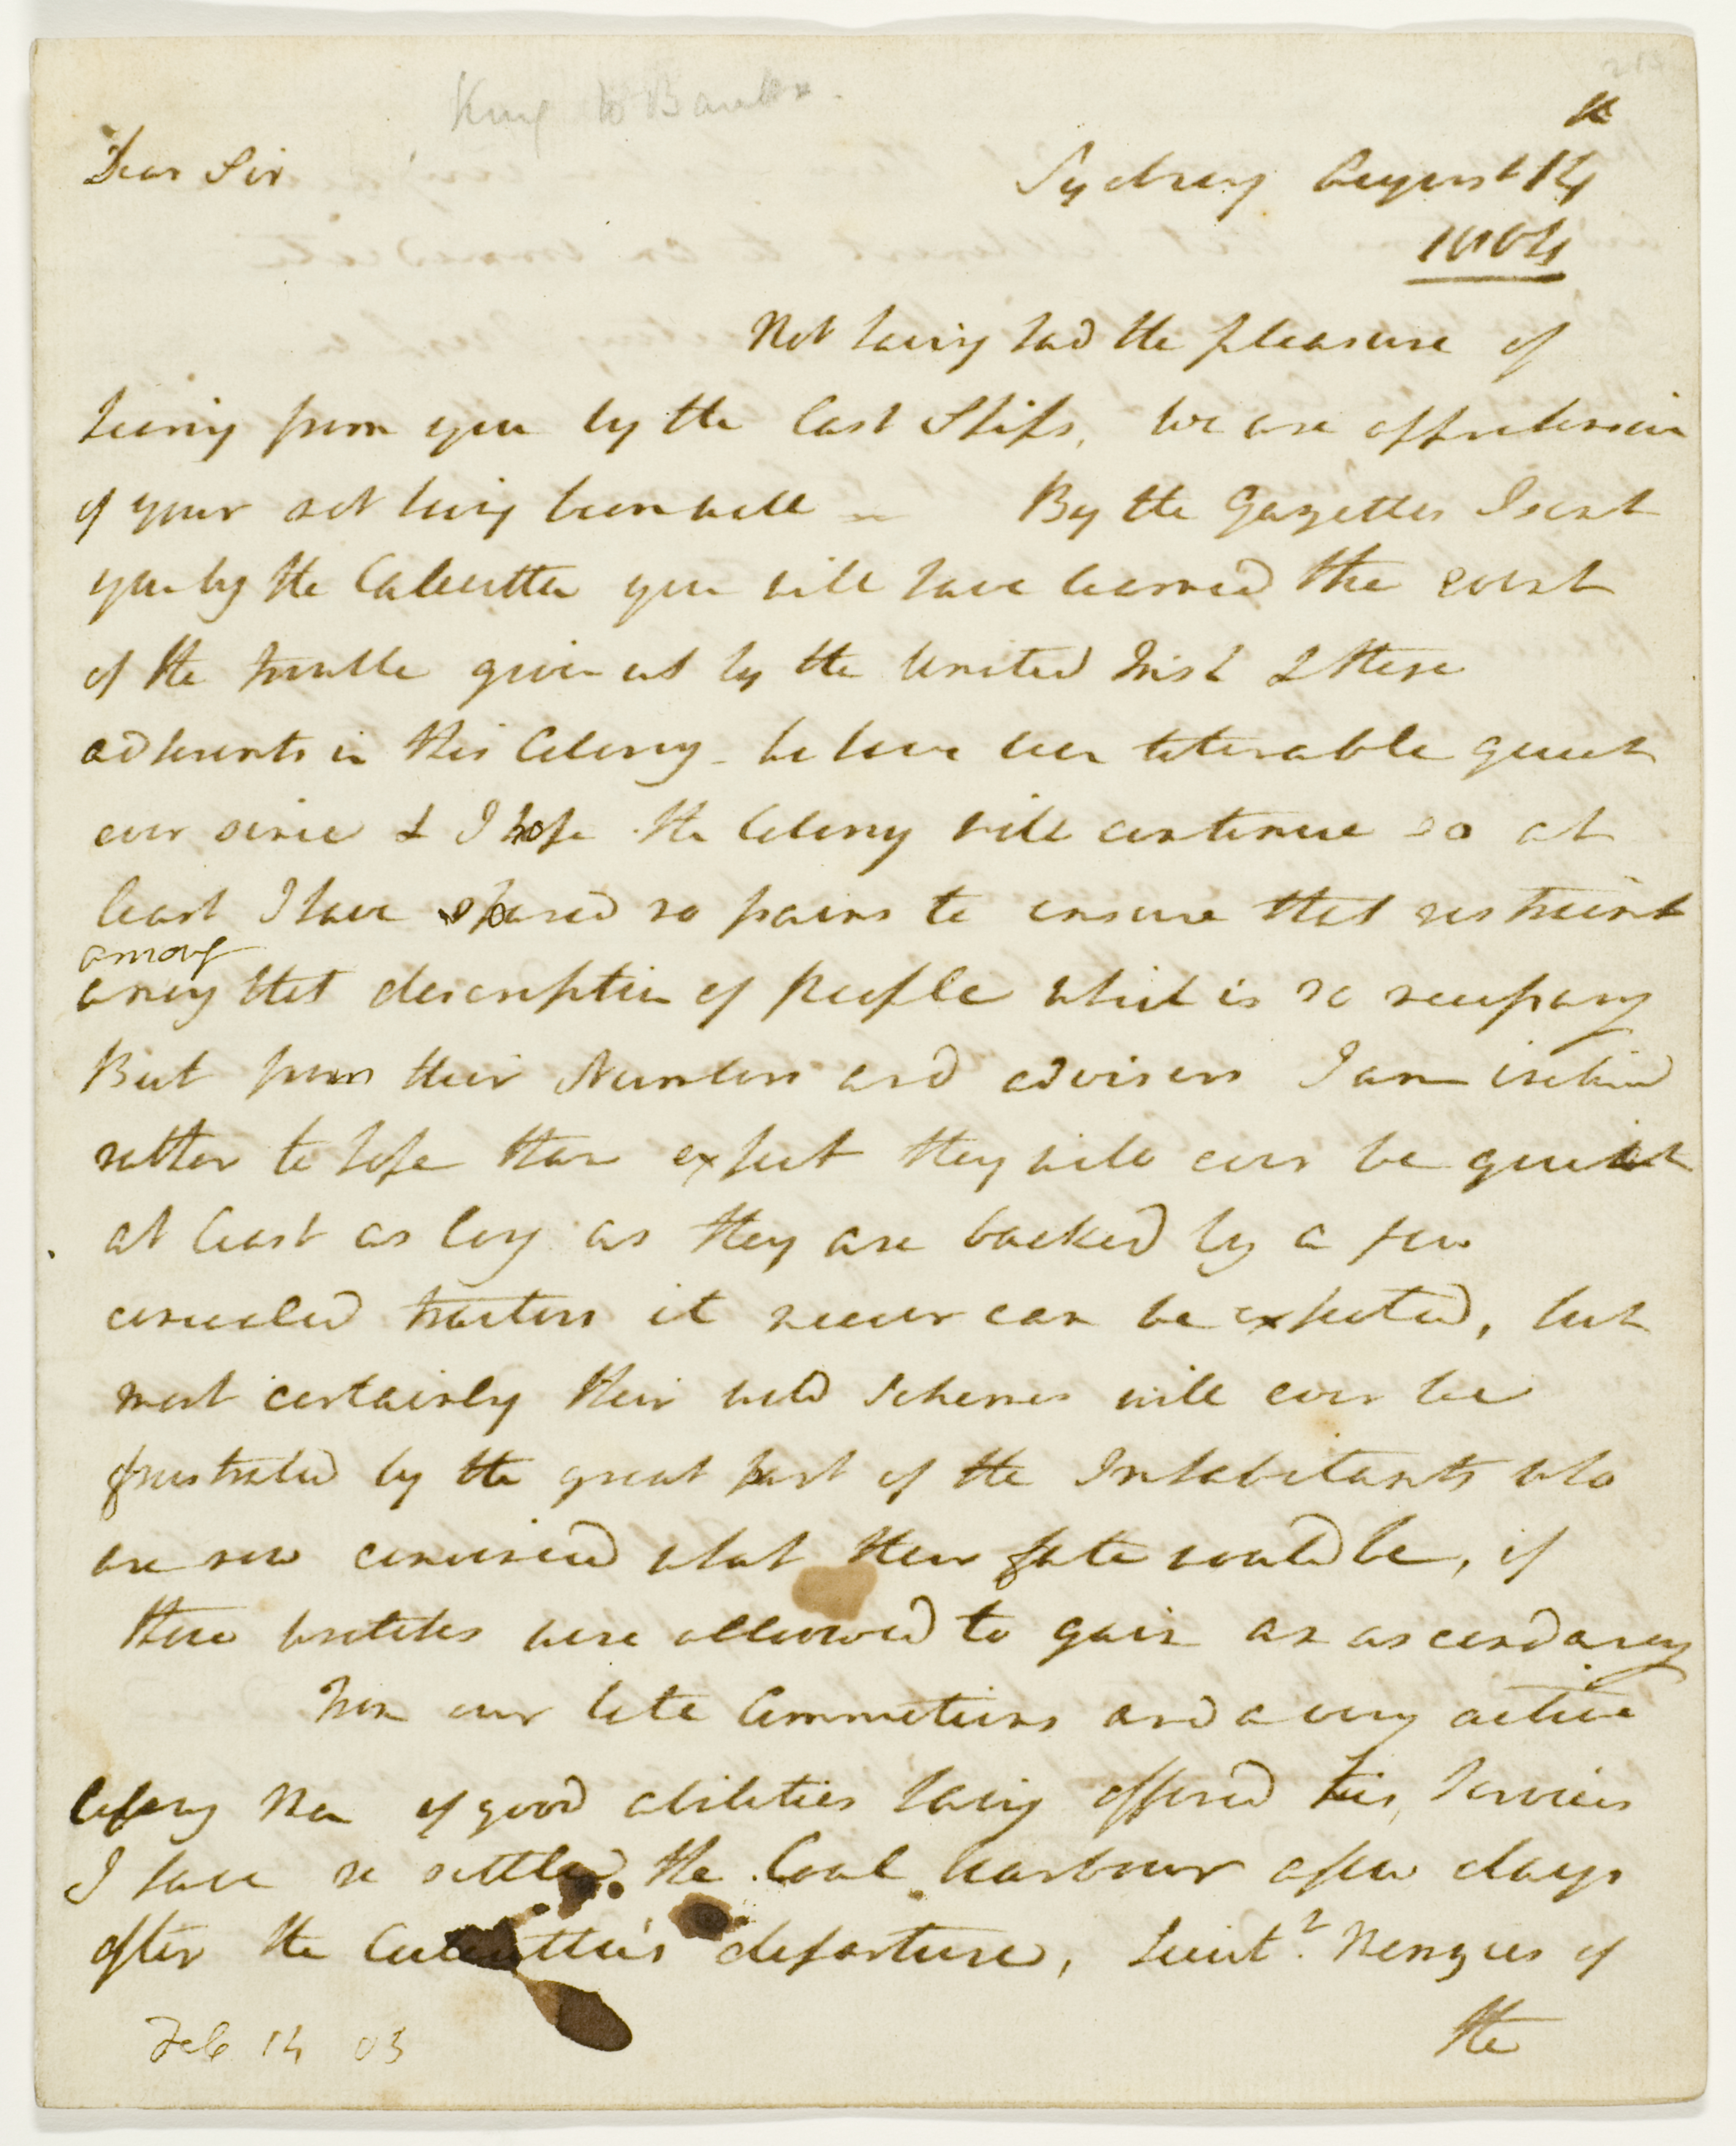 King to Banks.
Dear Sir
Sydney August 14
1804
Not having had the pleasure of
hearing from you by the last Ships, we are apprehensive
of your not having been well - By the Gazettes I sent
you by the Calcutta you will have learned the event
of the trouble given us by the United Irish & these
adherents in this Colony - we have been tolerable quiet
ever since & I hope the Colony will continue so at
least I have spared no pains to ensure that restraint
among
among that description of people which is so necessary
But from their Numbers and advisers I am inclined
rather to hope than expect they will ever be quiet
at least as long as they are backed by a few
concealed traitors it never can be expected, but
most certainly their wild Schemes will ever be
frustrated by the great part of the Inhabitants who
are now convinced what their fate would be, if
these wretches were allowed to gain an ascendancy
From our late Commotions and a very active
young Man of good abilities having offered his Services
I have re settled the Coal harbour a few days
after the Calcutta's departure, Lieut. Menzies of
the
Feb 14 03